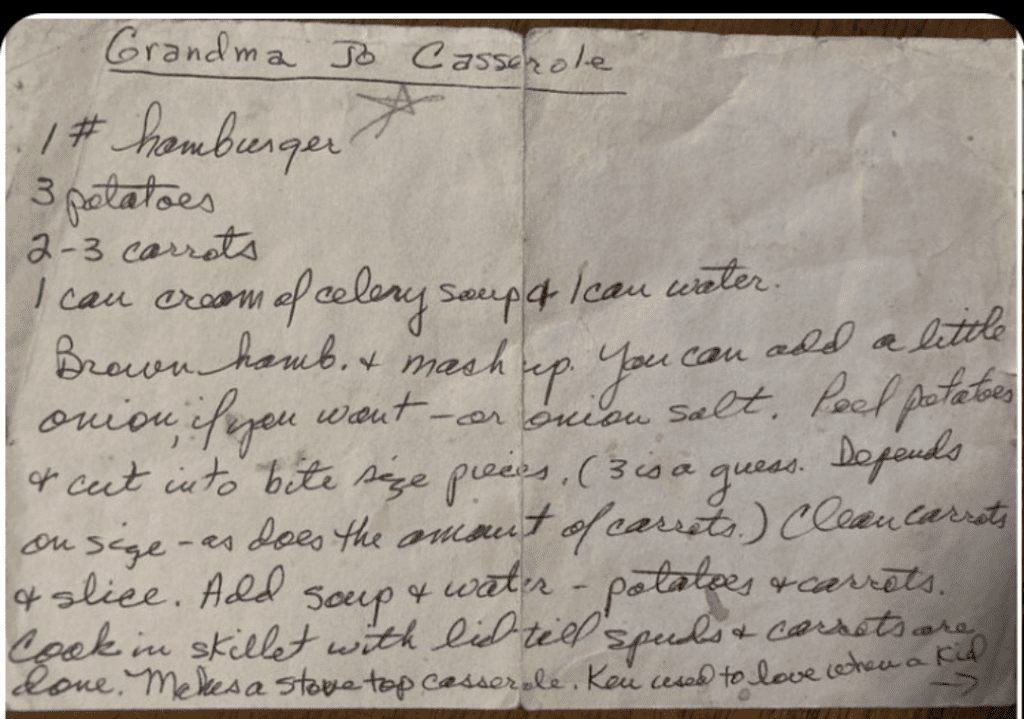 Grandma Jo Casserole
1 # hamburger
3 potatoes
2-3 carrots
1 can cream of celery soup & 1 can water.
Brown hamb. & mash up. You can add a little
onion, if you want - or onion salt. Peel potatoes
& cut into bite size pieces. (3 is a guess. Depends
on size - as does the amount of carrots.) Clean carrots
& slice. Add soup & water - potatoes & carrots.
Cook in skillet with lid till spuds & carrots are
done. Makes a stove top casserole. Ken used to love when a kid
→